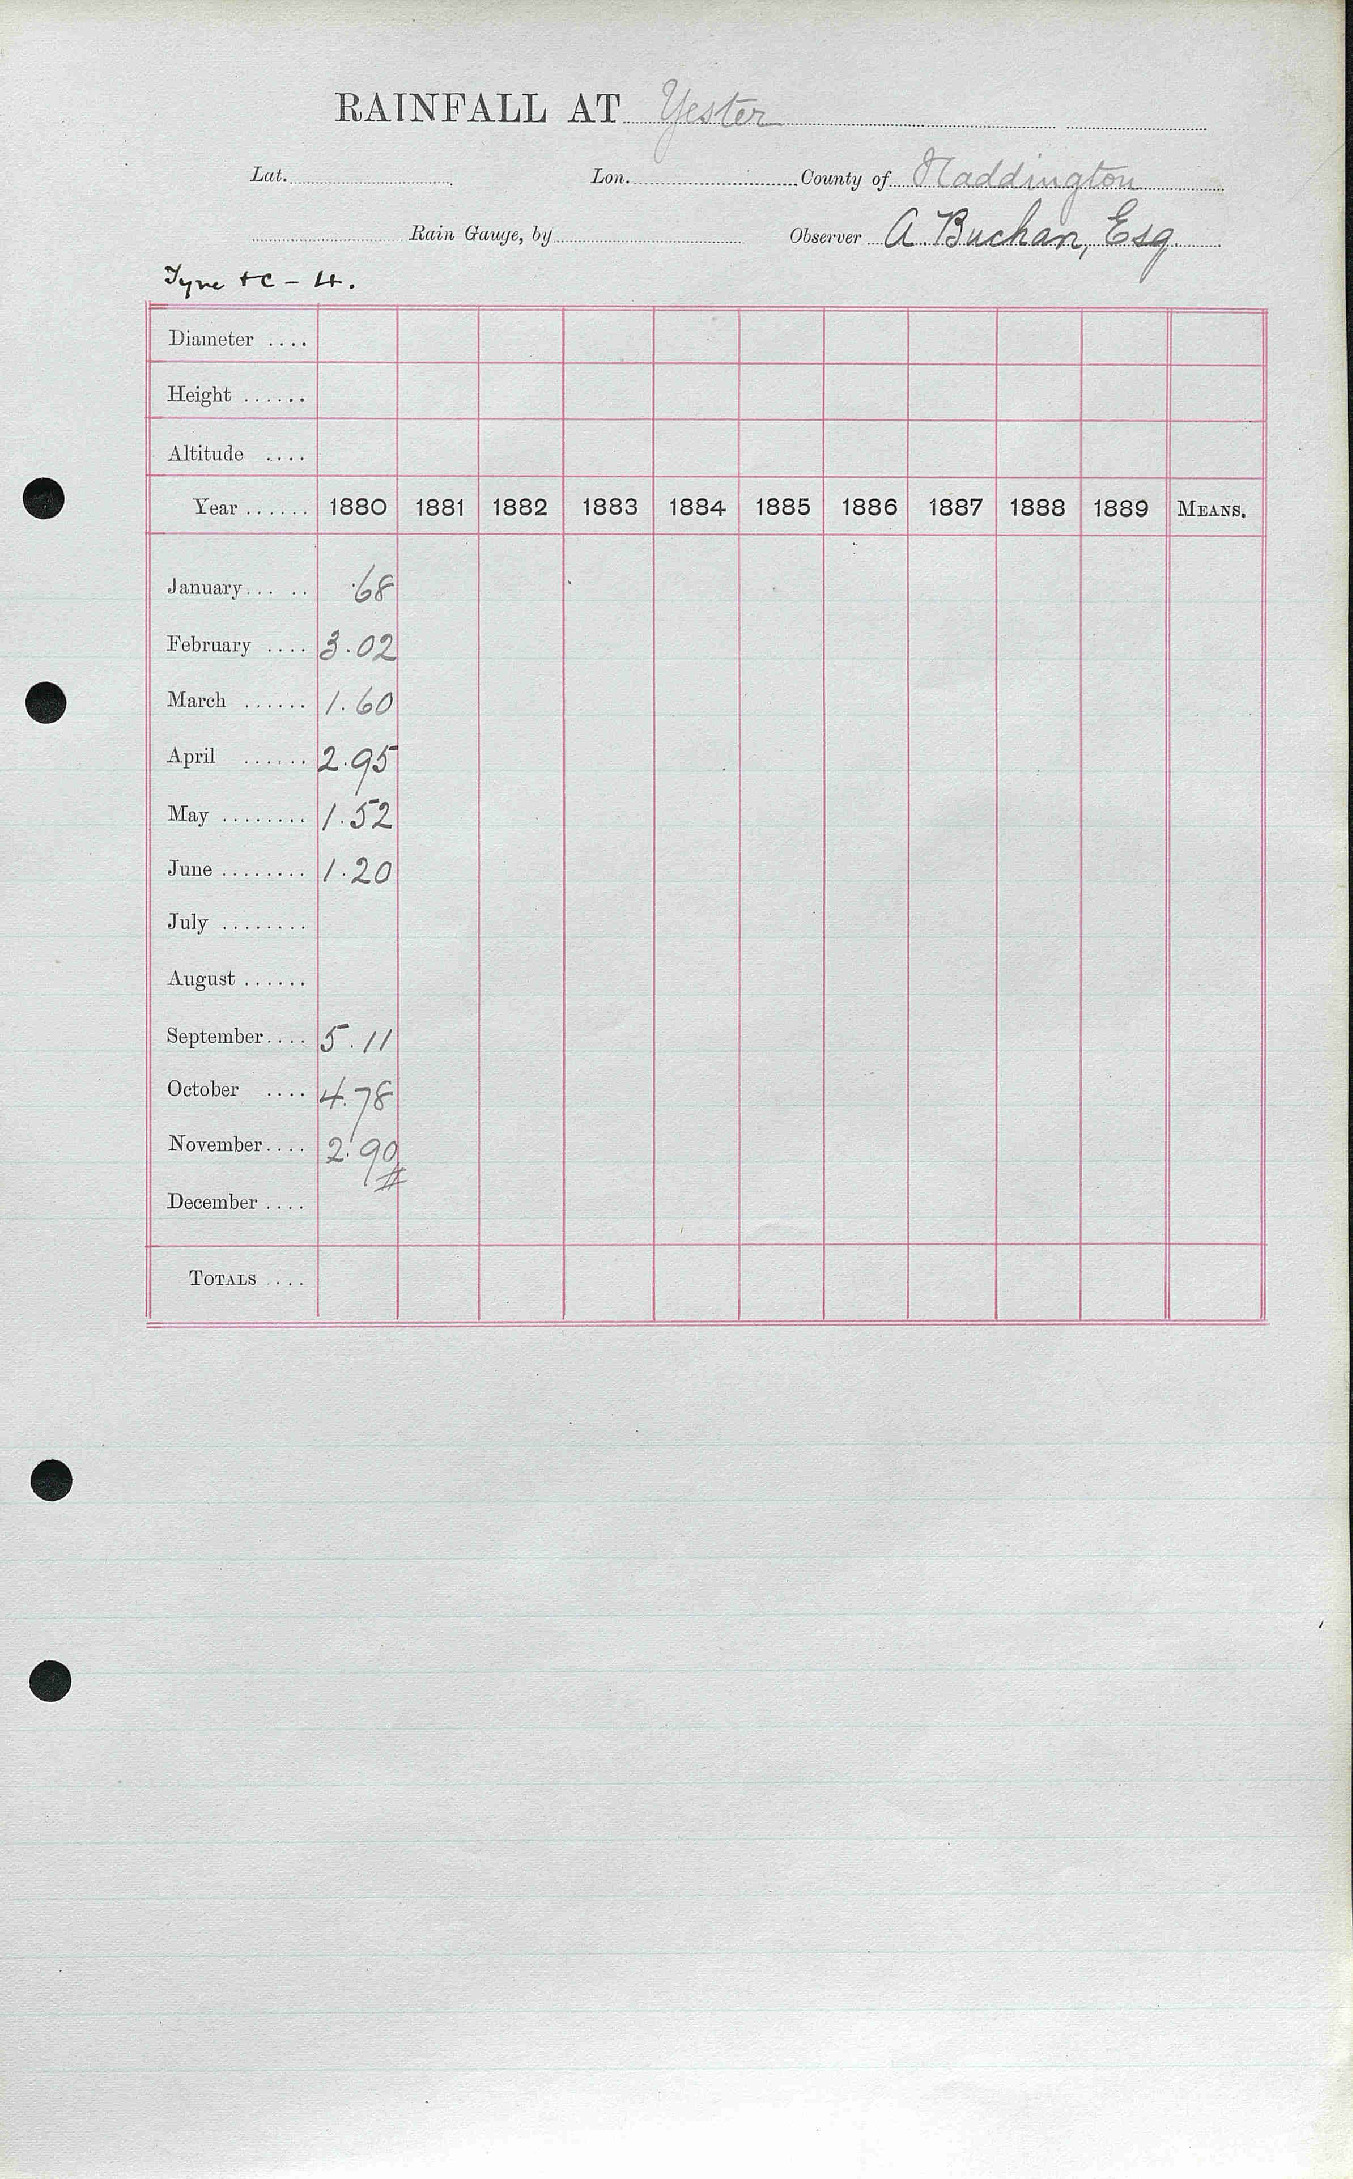 RAINFALL AT Yester
Lat. Lon. County of Haddington
Rain Gauge, by Observer A Buchan, Esq.
Tyne &c - 4.
Diameter ....
Height ......
Altitude ....
Year ...... 1880 1881 1882 1883 1884 1885 1886 1887 1888 1889 MEANS.
January ... .. .68
February .... 3.02
March ...... 1.60
April ...... 2.95
May ........ 1.52
June ........ 1.20
July ........
August ......
September .... 5.11
October .... 4.78
November .... 2.90
December ....
TOTALS ....